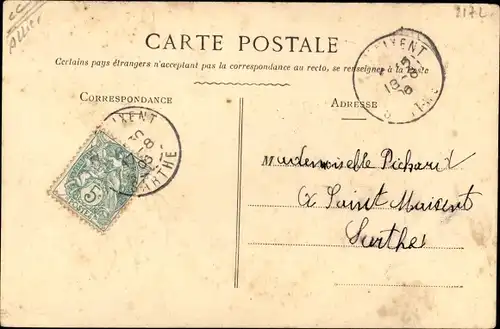 CARTE POSTALE
Certains pays étrangers n'acceptant pas la correspondance au recto, se renseigner à la Poste
CORRESPONDANCE
ADRESSE
Mademoiselle Pichard
a Saint Maixent
Sarthe
5